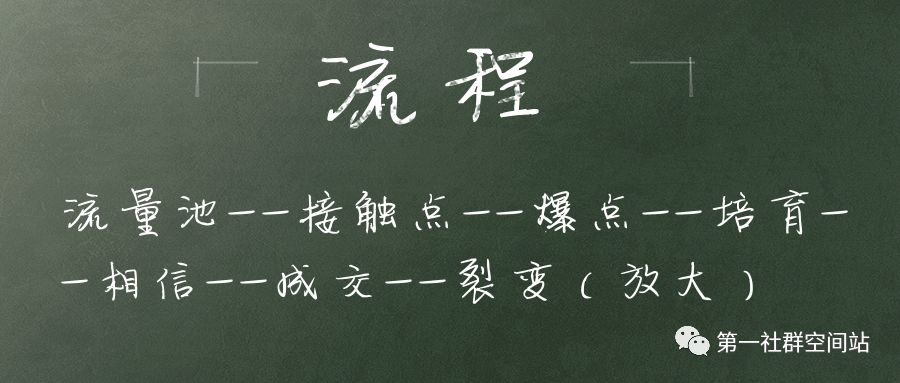 流程
流量池——接触点——爆点——培育—
—相信——成交——裂变（放大）
第一社群空间站